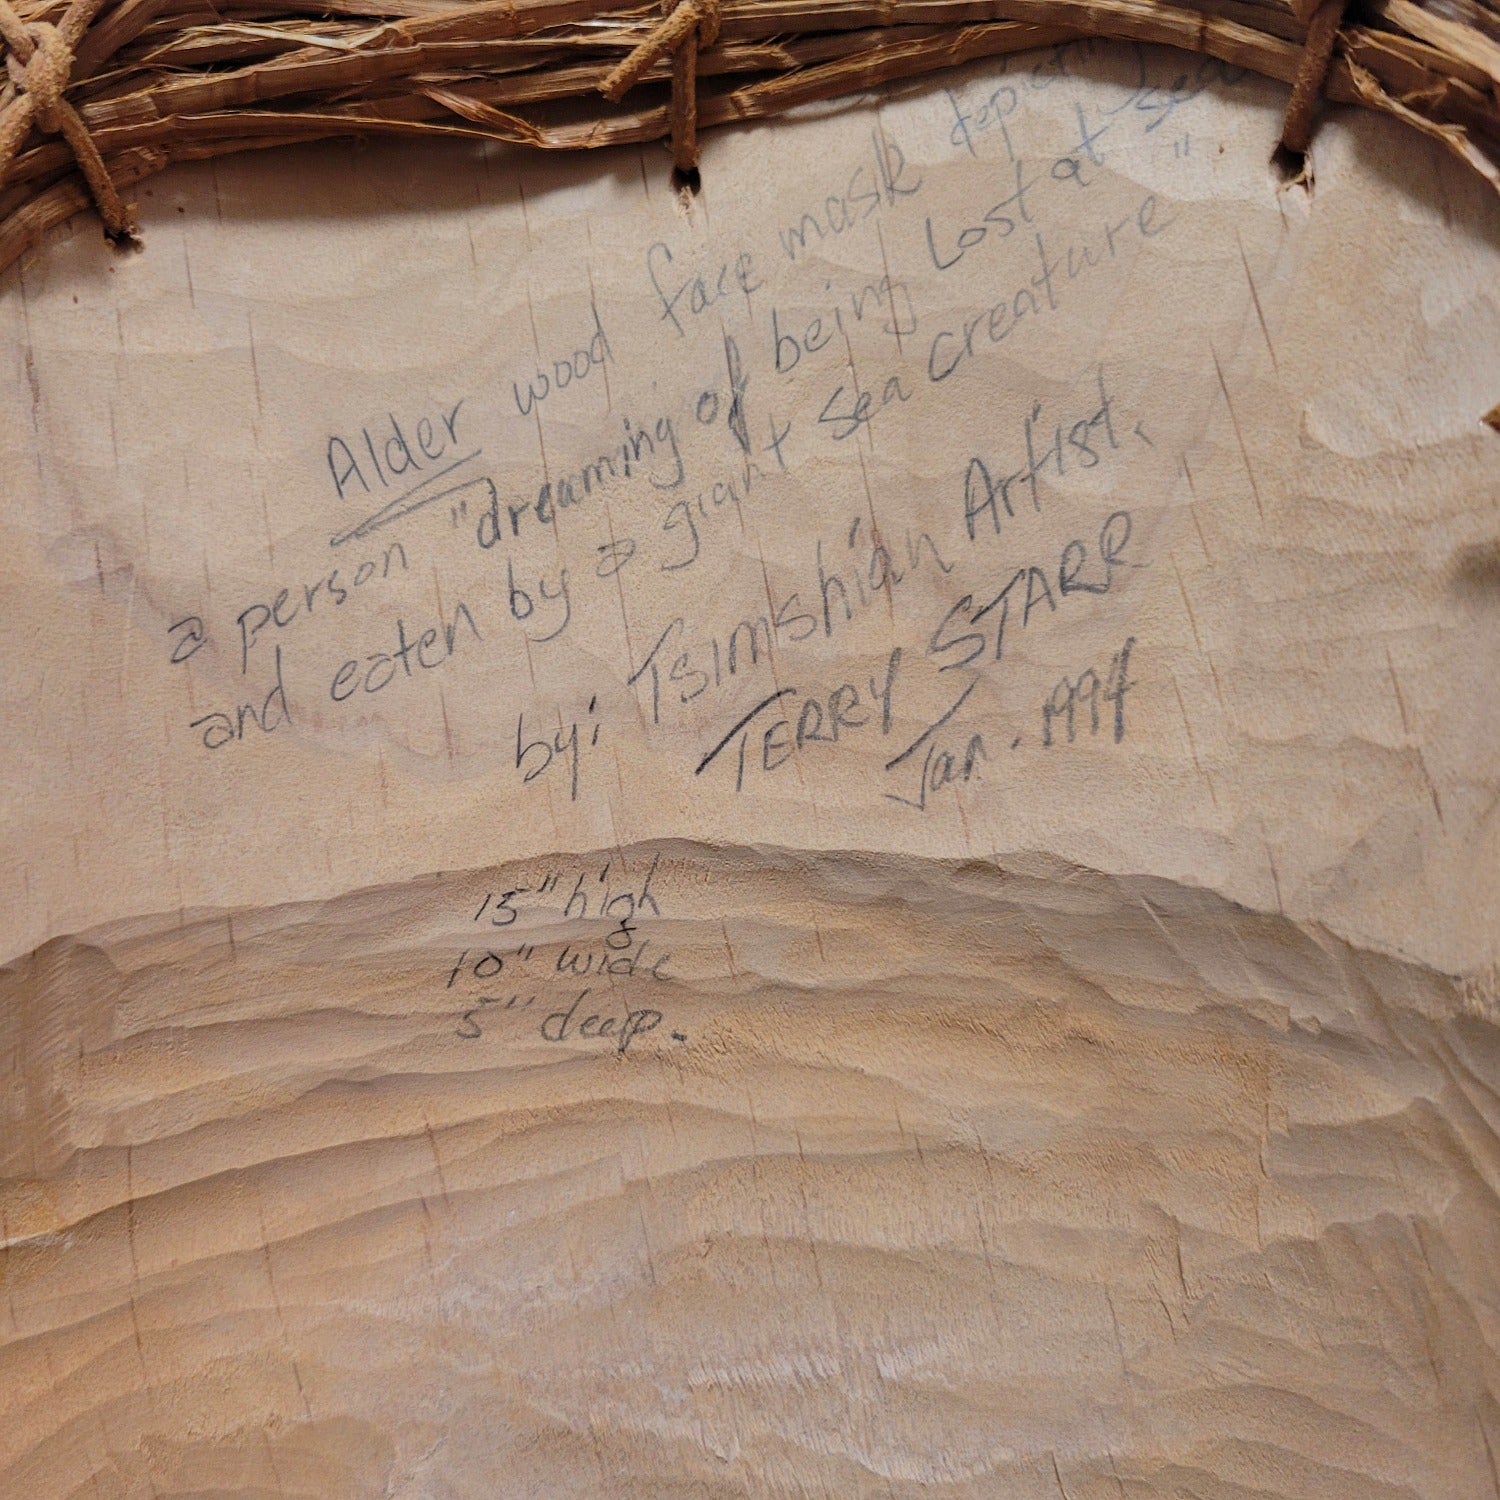 Alder wood face mask depicting
a person "dreaming of being Lost at sea
and eaten by a giant sea creature"
by: Tsimshian Artist.
TERRY STARR
Jan. 1994
15" high
10" wide
5" deep.